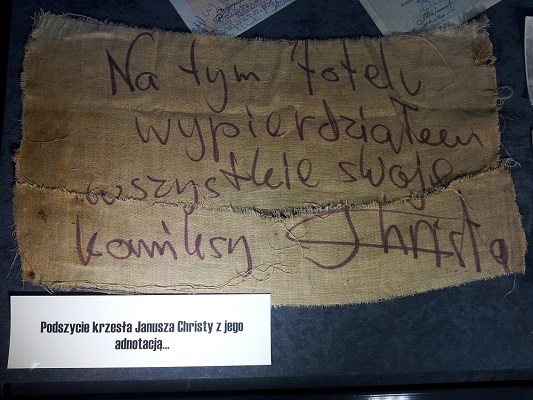 Na tym fotelu
wypierdziałem
wszystkie swoje
komiksy Christa
Podszycie krzesła Janusza Christy z jego
adnotacją...